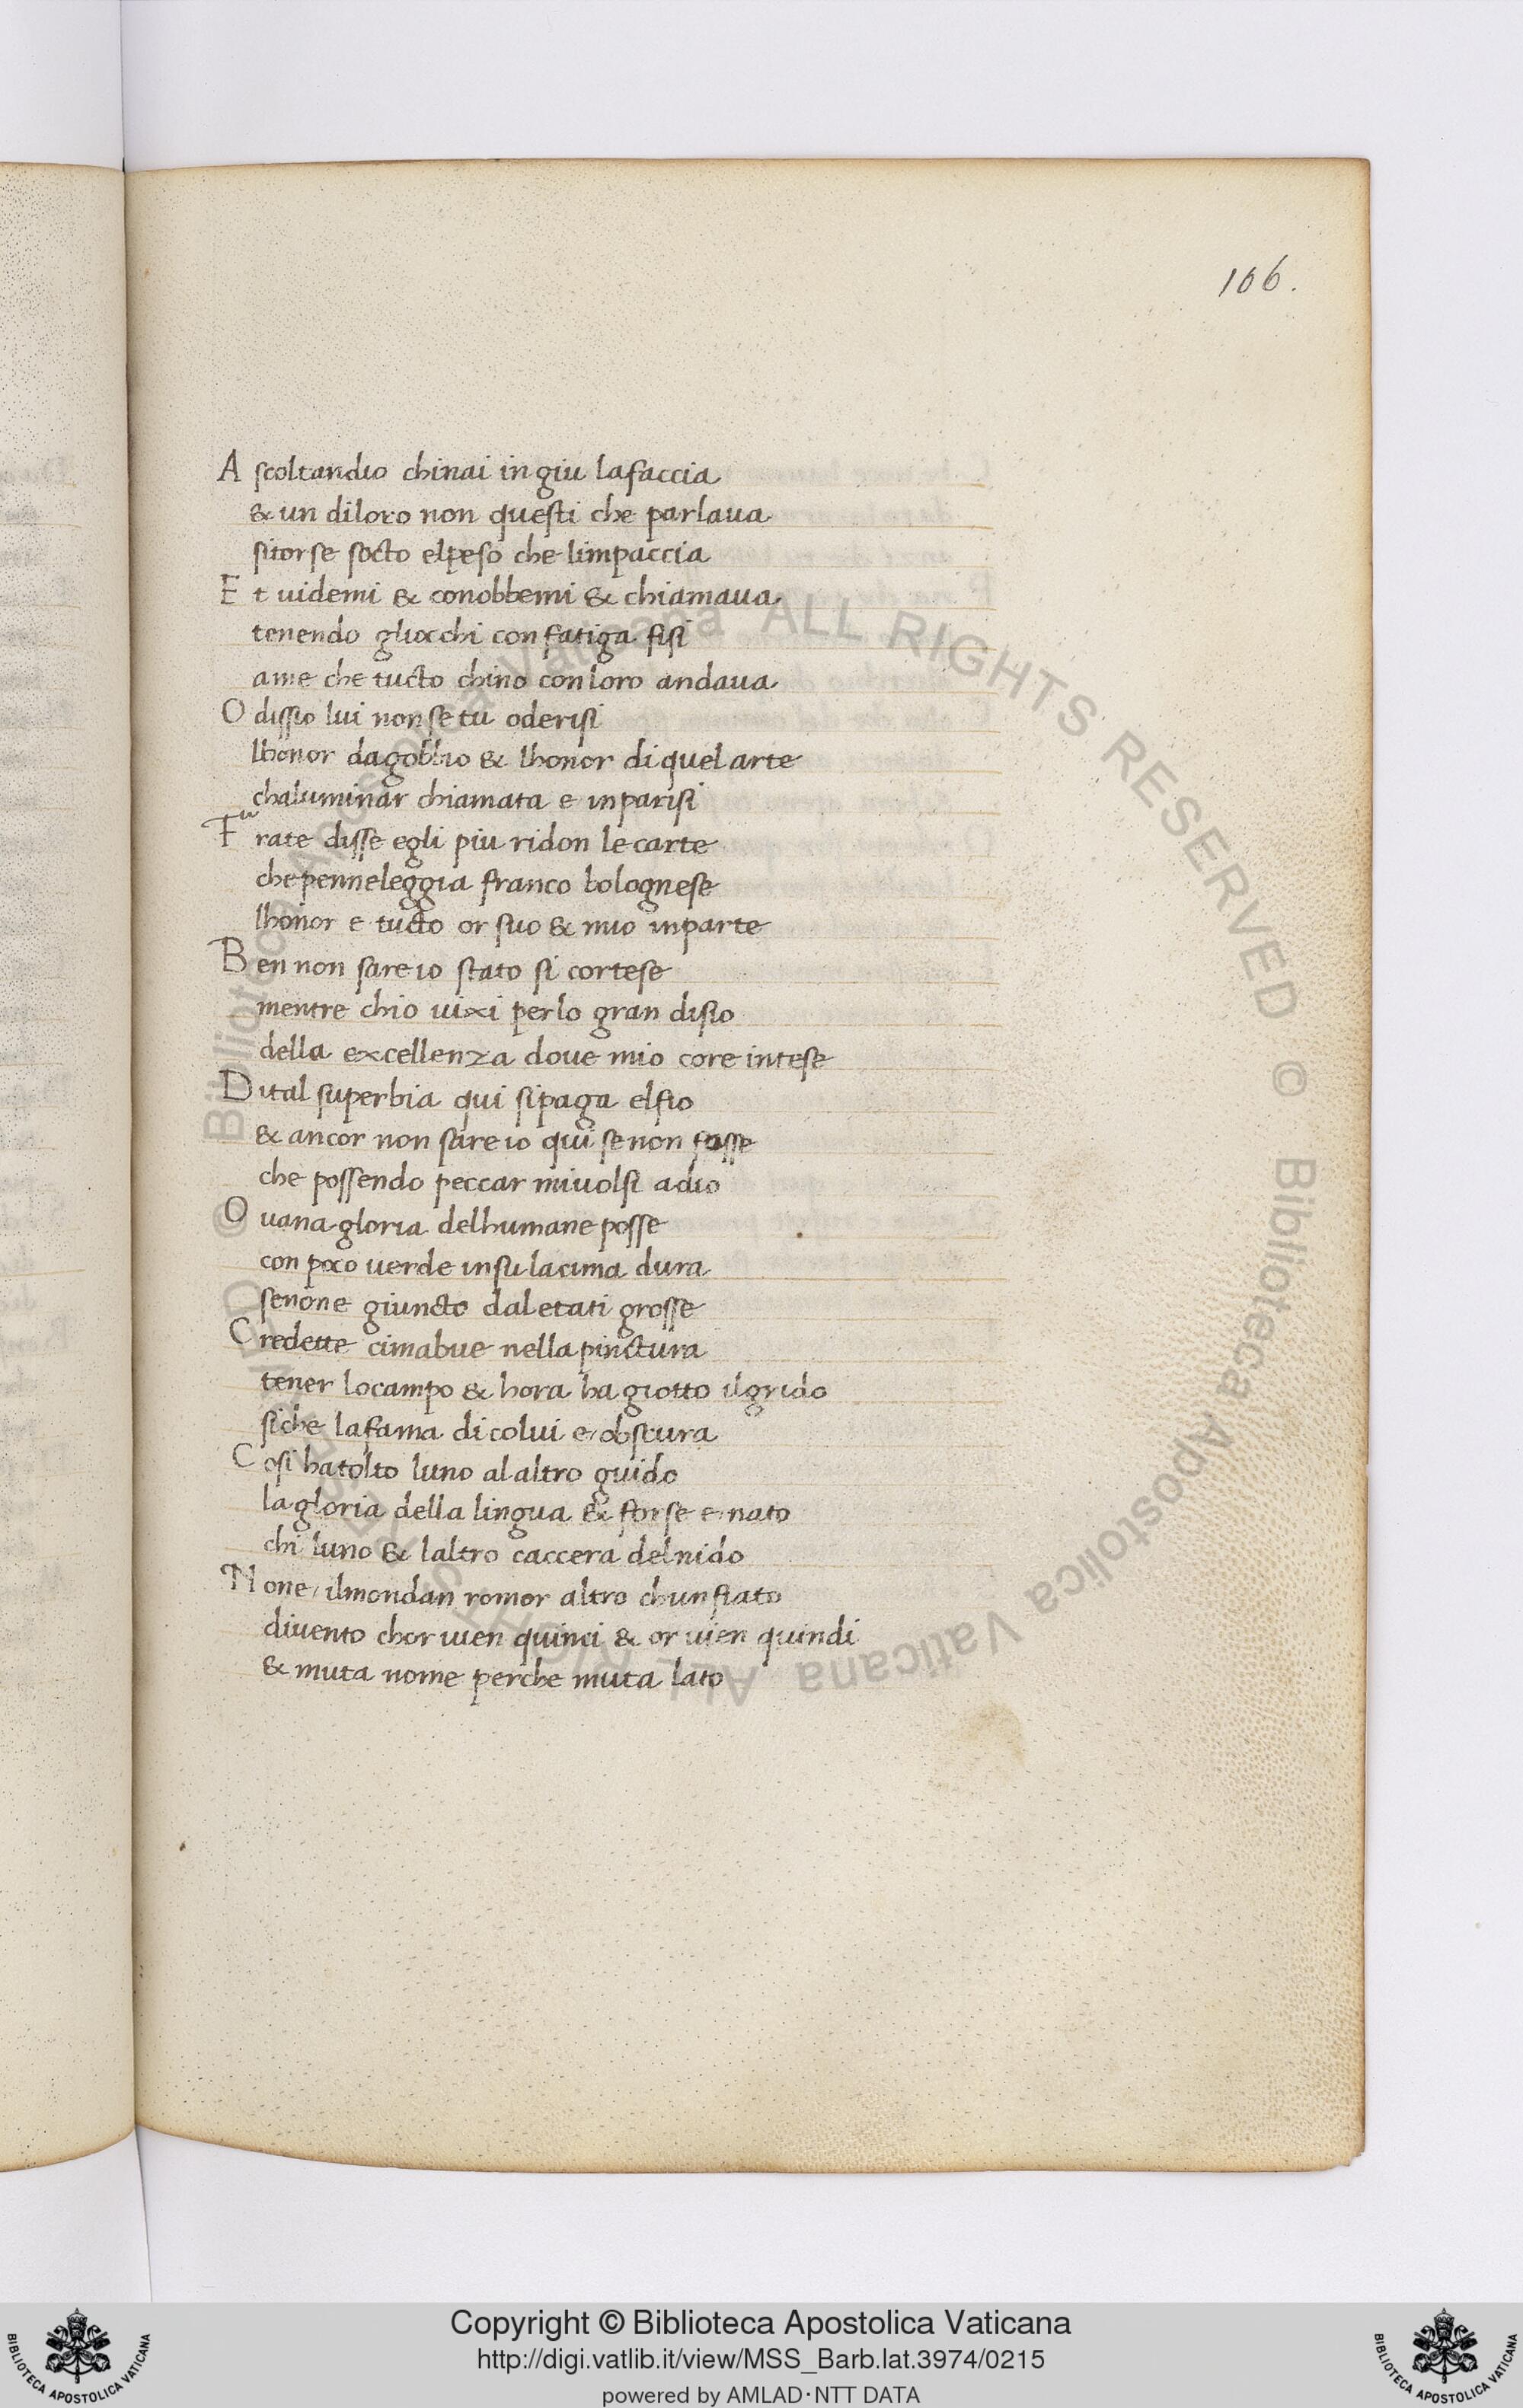 106.
A scoltandio chinai in giu lafaccia
& un diloro non questi che parlaua
sitorse socto elpeso che limpaccia
E t uidemi & conobbemi & chiamaua
tenendo gliocchi con fatiga fisi
ame che tucto chino conloro andaua
O dissio lui non se tu oderisi
lhonor dagobbio & lhonor di quel arte
chaluminar chiamata e inparisi
F rate disse egli piu ridon le carte
che penneleggia franco bolognese
lhonor e tucto or suo & mio inparte
B en non sare io stato si cortese
mentre chio uixi perlo gran disio
della excellenza doue mio core intese
D ital superbia qui sipaga elfio
& ancor non sare io qui se non fosse
che possendo peccar miuolsi adio
O uana gloria delhumane posse
con poco uerde insu lacima dura
senone giuncto daletati grosse
C redette cimabue nella pinctura
tener locampo & hora ha giotto ilgrido
siche lafama di colui e obscura
C osi hatolto luno alaltro guido
la gloria della lingua & forse e nato
chi luno & laltro caccera delnido
N one ilmondan romor altro chunfiato
diuento chor uien quinci & or uien quindi
& muta nome perche muta lato
© Biblioteca Apostolica Vaticana ALL RIGHTS RESERVED © Biblioteca Apostolica Vaticana ALL RIGHTS RESERVED
Copyright © Biblioteca Apostolica Vaticana
http://digi.vatlib.it/view/MSS_Barb.lat.3974/0215
powered by AMLAD·NTT DATA
BIBLIOTECA APOSTOLICA VATICANA
BIBLIOTECA APOSTOLICA VATICANA